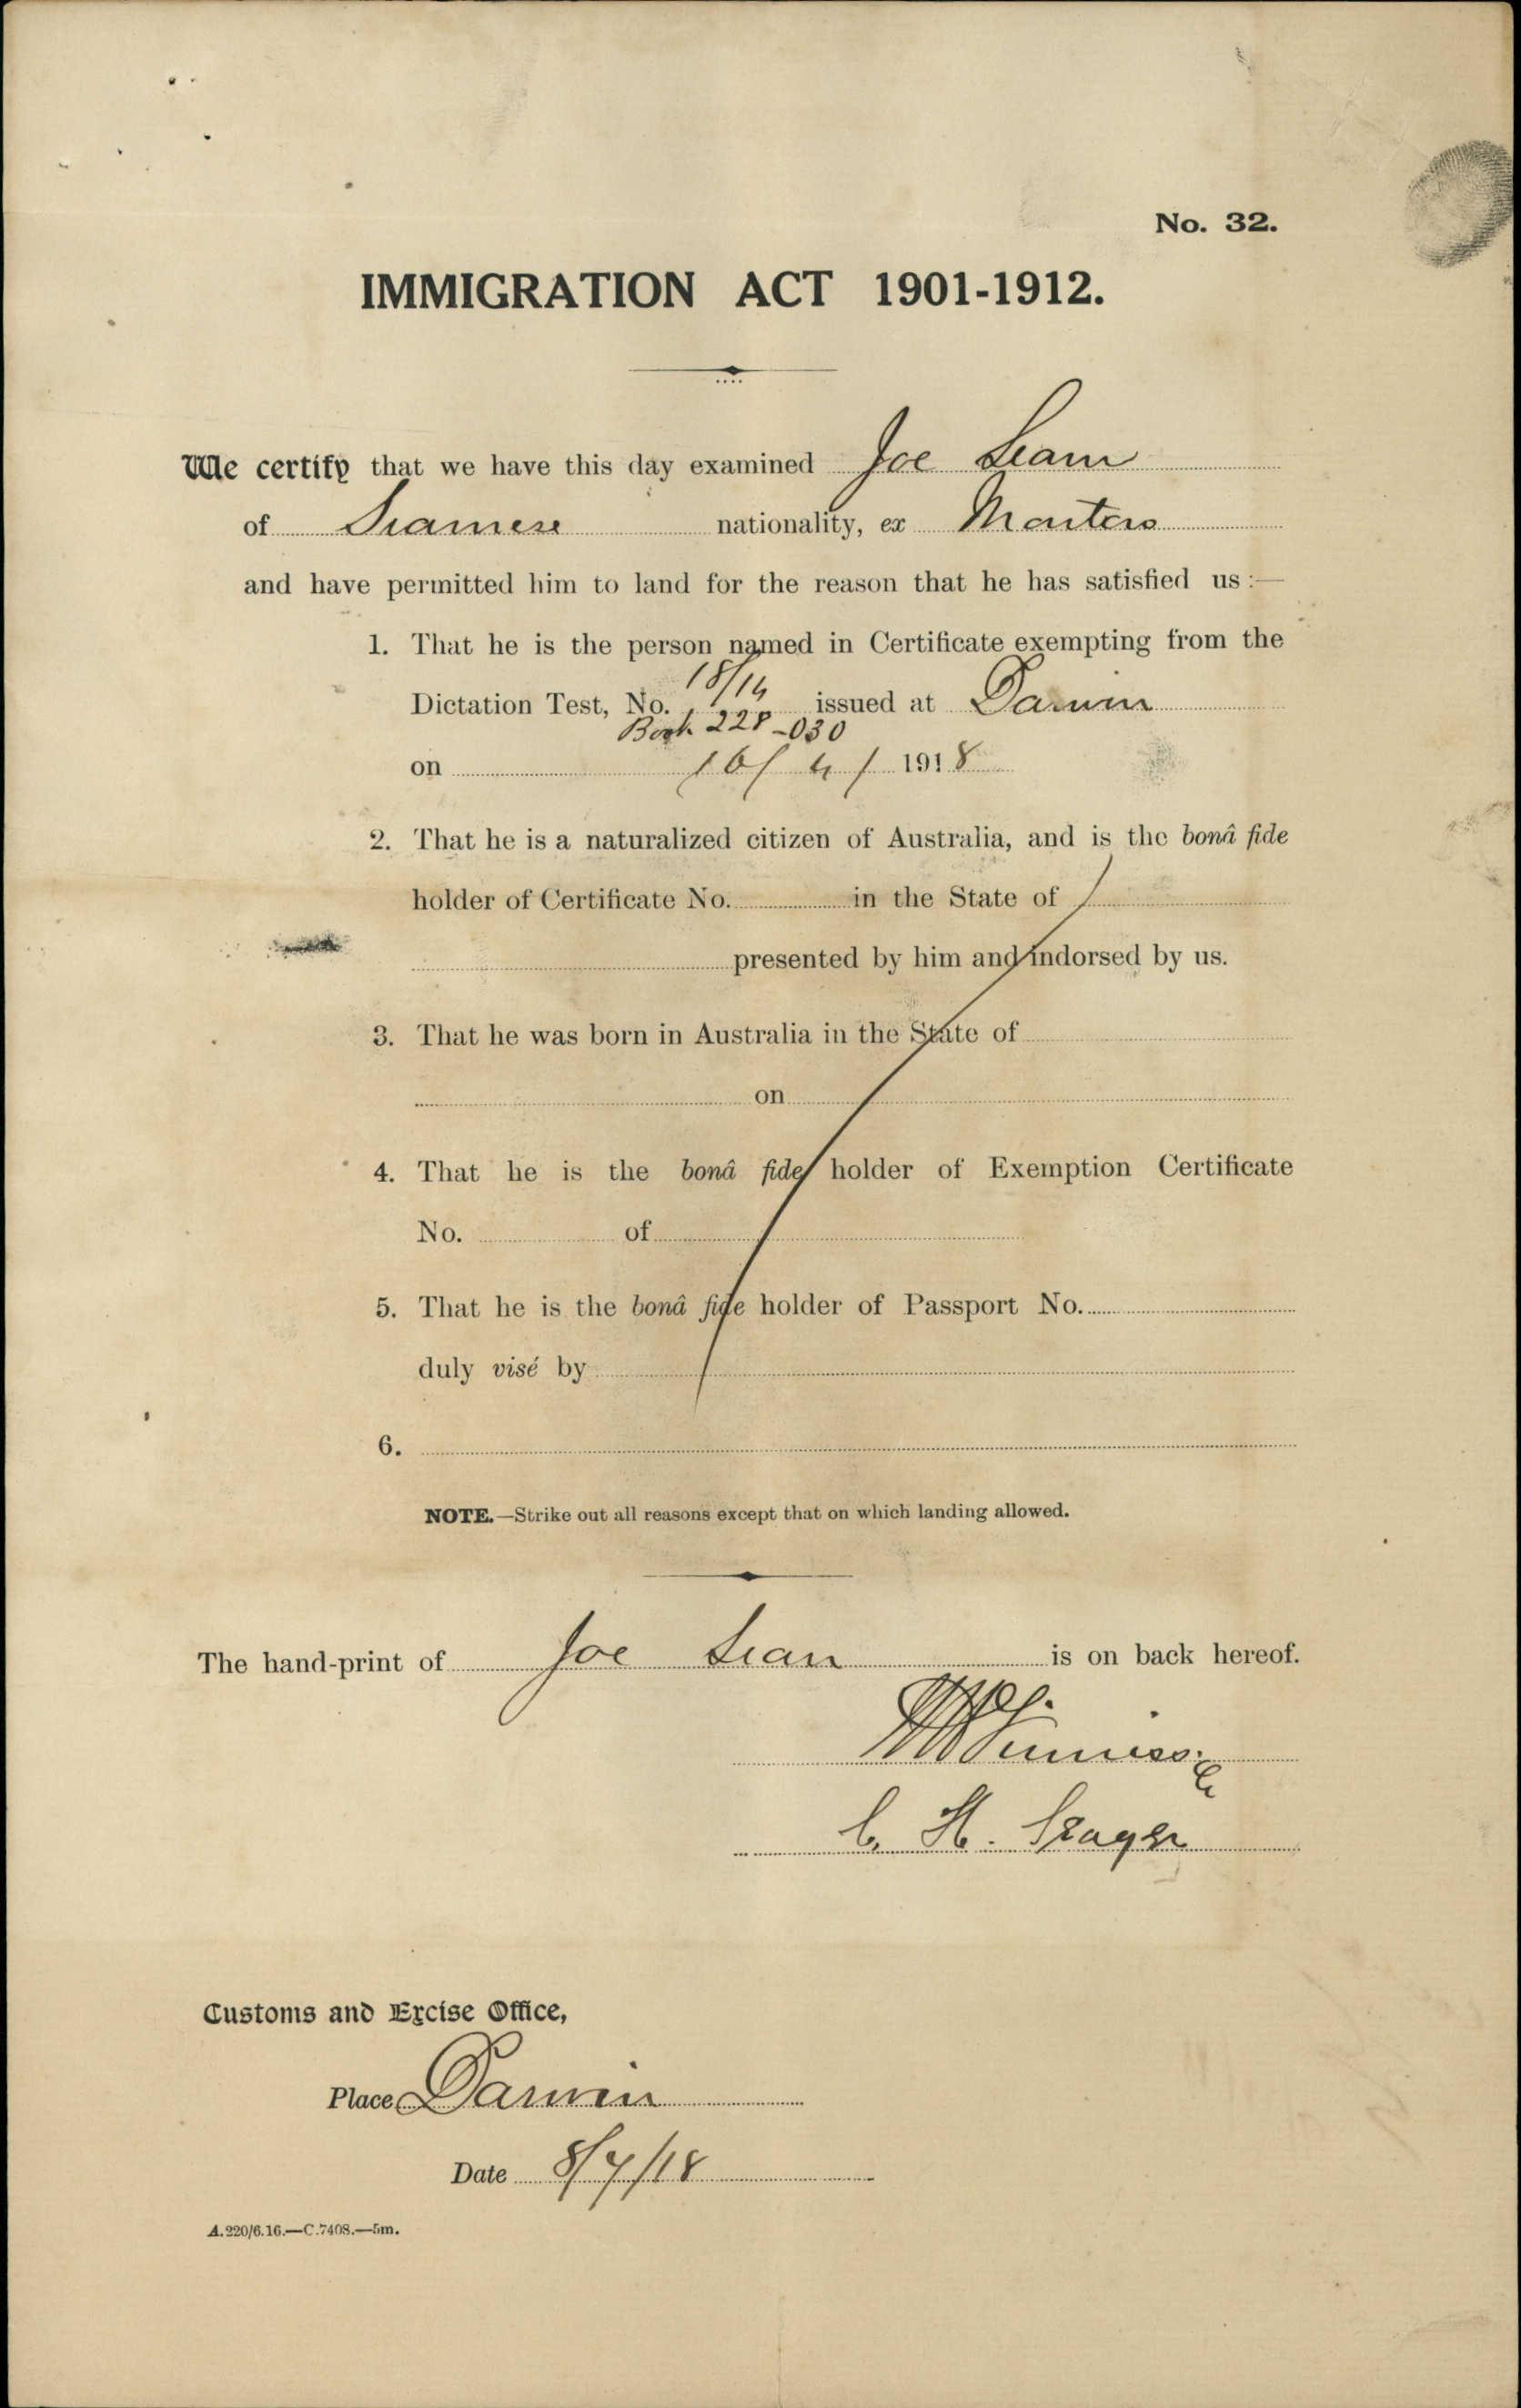 No. 32.
IMMIGRATION ACT 1901-1912.
We certify that we have this day examined Joe Siam
of Siamese nationality, ex Montoro
and have permitted him to land for the reason that he has satisfied us:—
1. That he is the person named in Certificate exempting from the
18/14
Dictation Test, No. issued at Darwin
Book 228-030
on 16/4/1918
2. That he is a naturalized citizen of Australia, and is the bonâ fide
holder of Certificate No. in the State of
presented by him and indorsed by us.
3. That he was born in Australia in the State of
on
4. That he is the bonâ fide holder of Exemption Certificate
No. of
5. That he is the bonâ fide holder of Passport No.
duly visé by
6.
NOTE.—Strike out all reasons except that on which landing allowed.
The hand-print of Joe Sian is on back hereof.
C. H. Seager
Customs and Excise Office,
Place Darwin
Date 8/7/18
A.220/6.16.—C.7408.—5m.